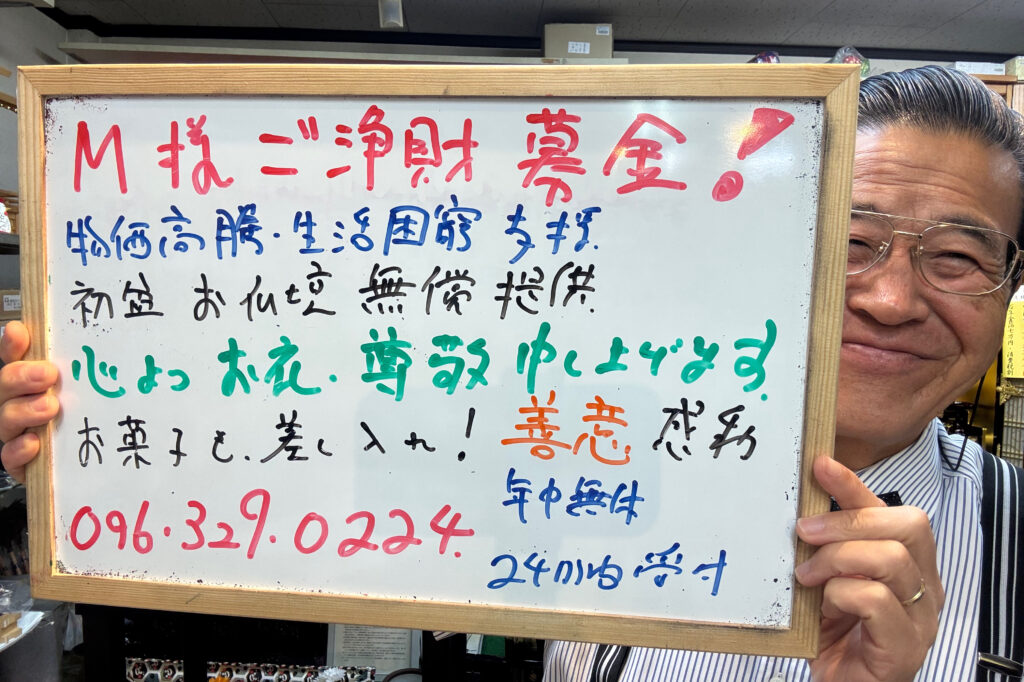 M様ご浄財募金!
物価高騰・生活困窮支援.
初盆お仏壇無償提供
心よりお礼.尊敬申し上げます.
お菓子も、差し入れ!善意感動
096.329.0224.
年中無休
24時間受付